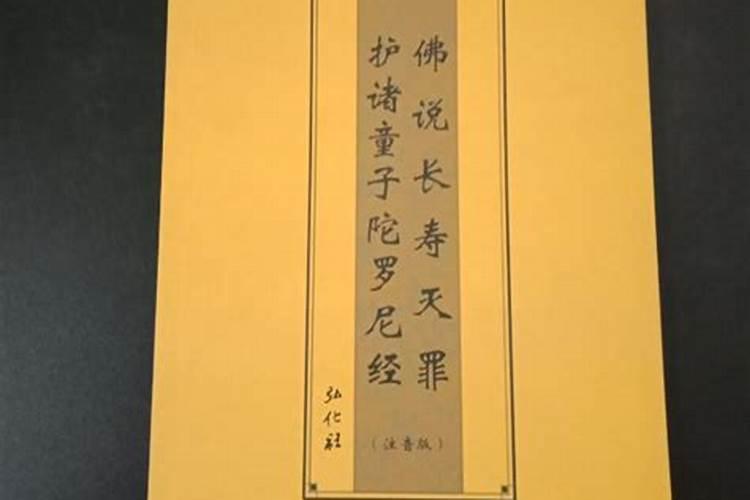 佛说长寿灭罪
护诸童子陀罗尼经
（注音版）
弘化社